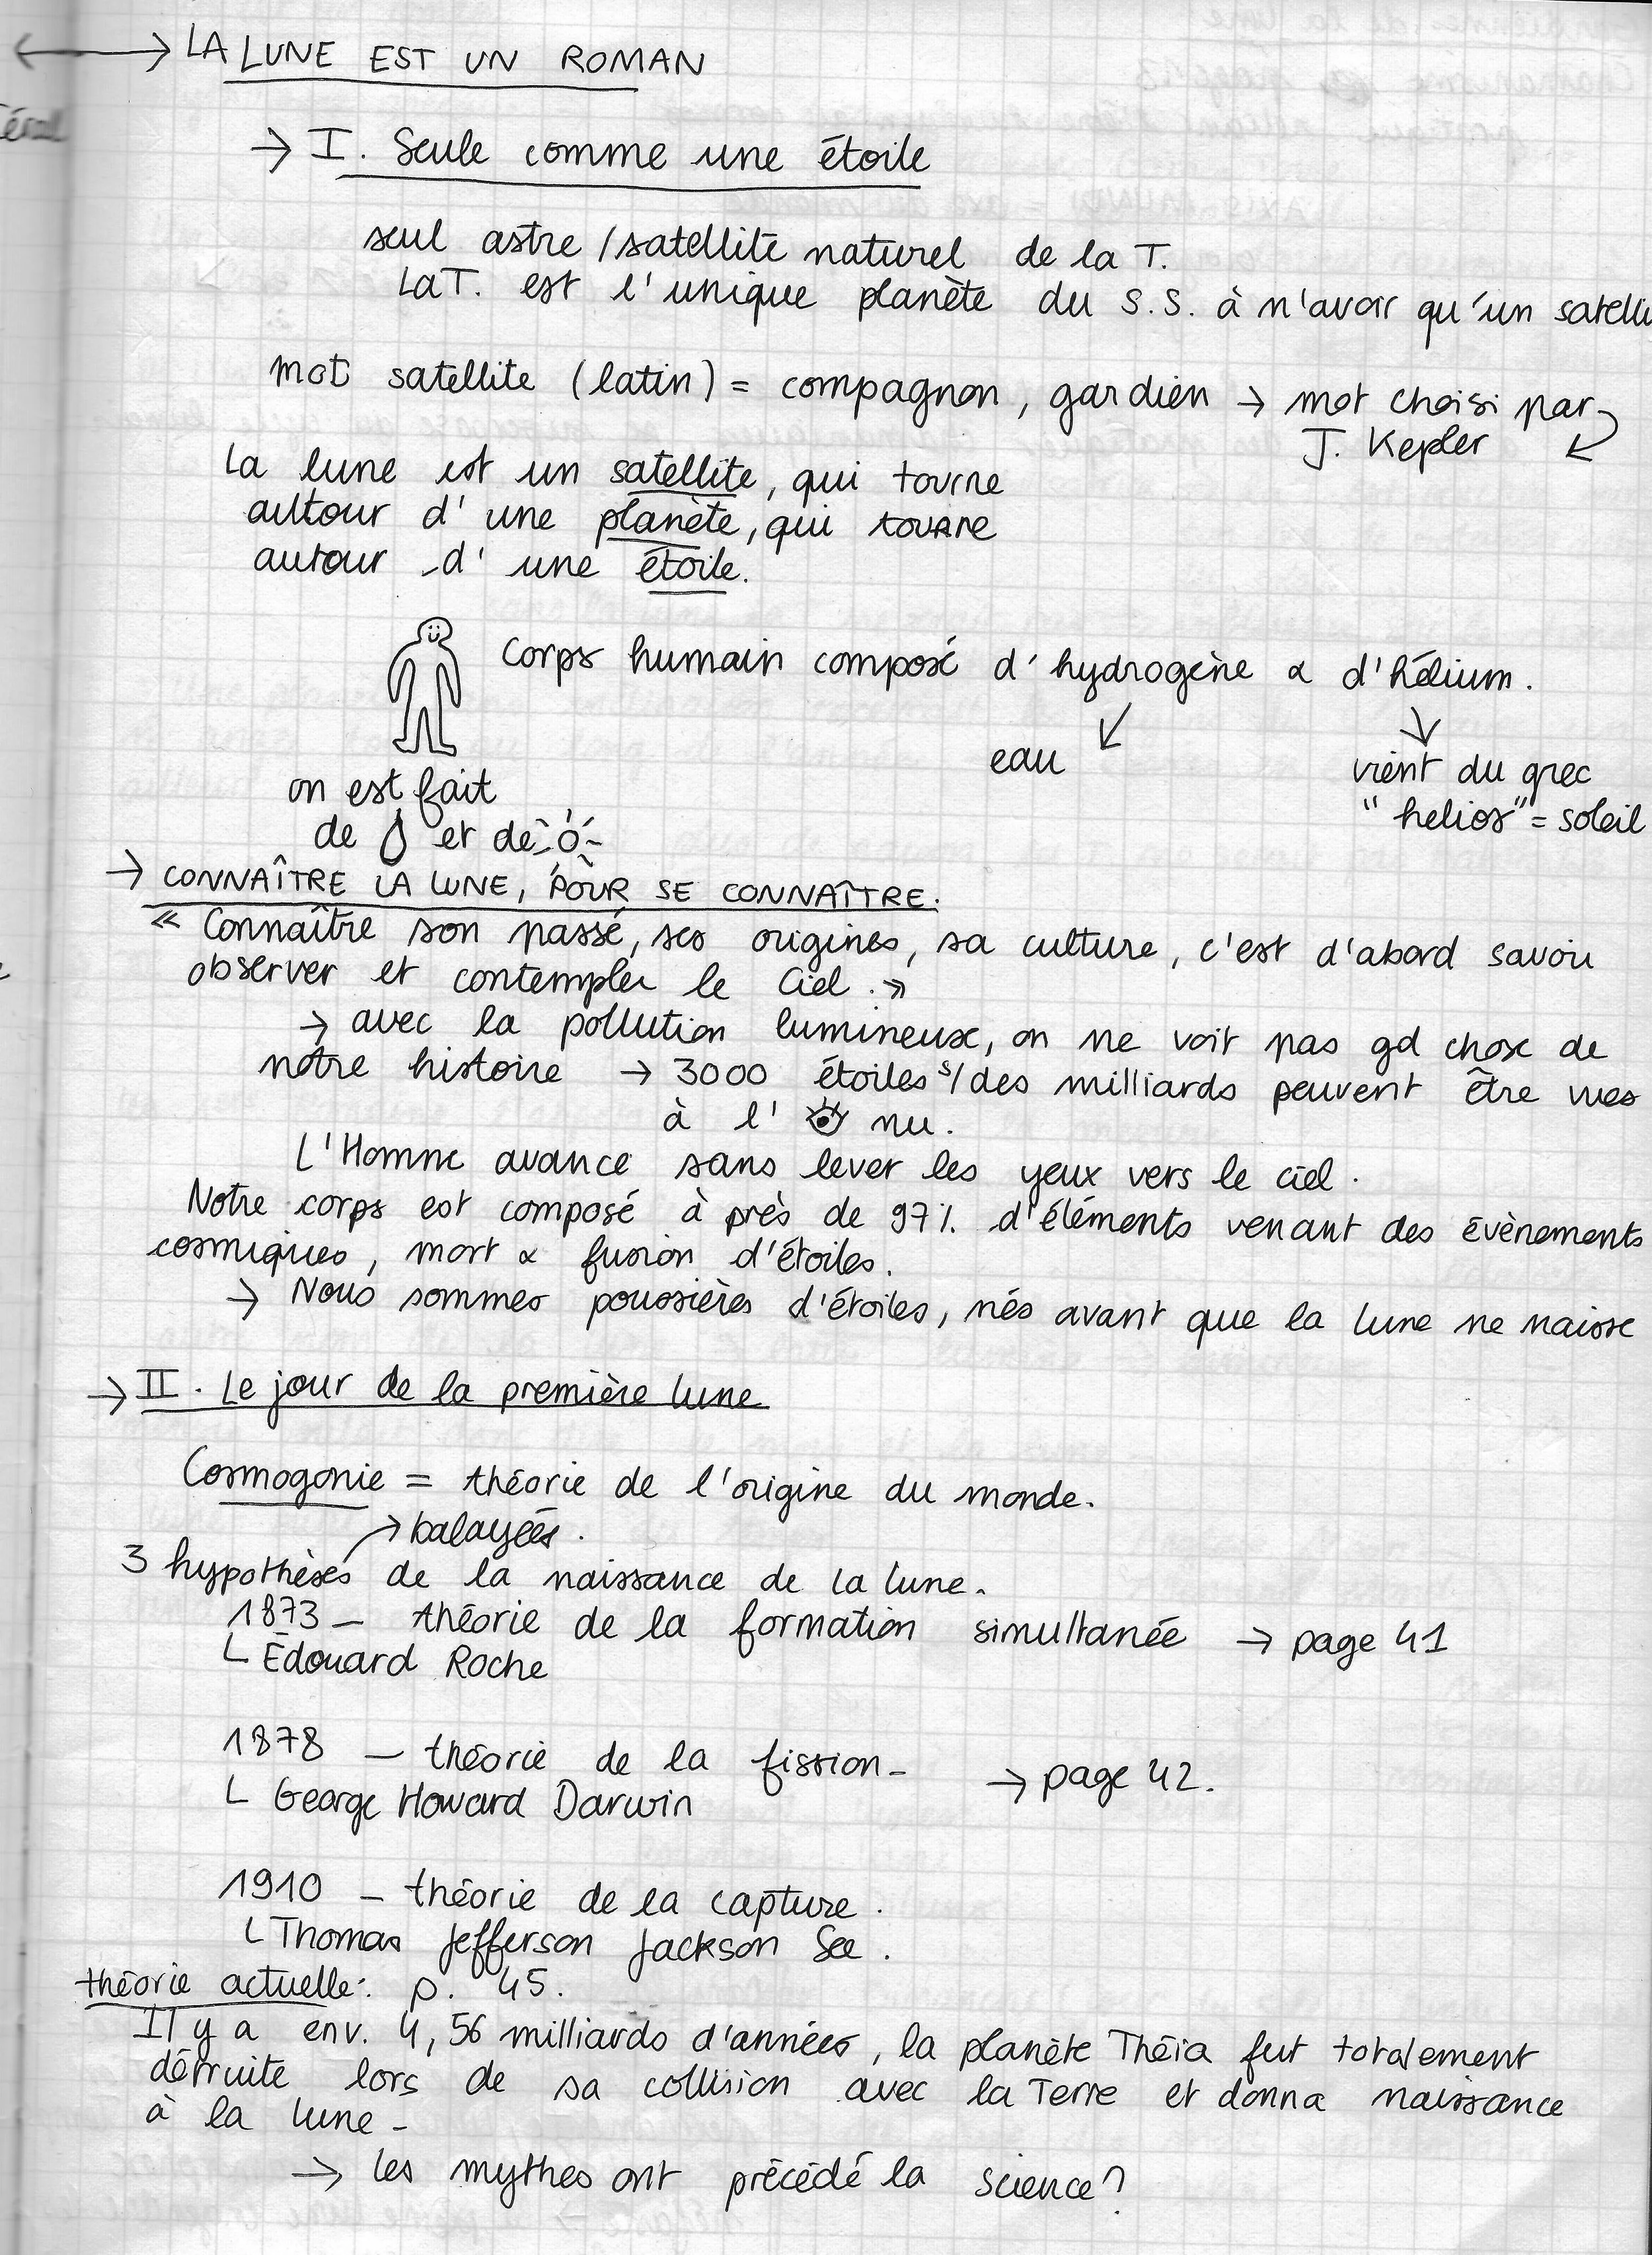 LA LUNE EST UN ROMAN
→ I. Seule comme une étoile
seul astre / satellite naturel de la T.
La T. est l'unique planète du S.S. à n'avoir qu'un satelli
mot satellite (latin) = compagnon, gardien → mot choisi par
J. Kepler
La lune est un satellite, qui tourne
autour d'une planète, qui tourne
autour d'une étoile.
Corps humain composé d'hydrogène & d'hélium.
eau
vient du grec
"helios" = soleil
on est fait
de et de
→ CONNAÎTRE LA LUNE, POUR SE CONNAÎTRE.
« Connaître son passé, ses origines, sa culture, c'est d'abord savoir
observer et contempler le Ciel. »
→ avec la pollution lumineuse, on ne voit pas gd chose de
notre histoire → 3000 étoiles s/ des milliards peuvent être vues
à l' nu.
L'Homme avance sans lever les yeux vers le ciel.
Notre corps est composé à près de 97% d'éléments venant des évènements
cosmiques, mort & fusion d'étoiles.
→ Nous sommes poussières d'étoiles, nés avant que la lune ne naisse
→ II. Le jour de la première lune
Cosmogonie = théorie de l'origine du monde.
→ balayées.
3 hypothèses de la naissance de la lune.
1873 - théorie de la formation simultanée → page 41
Édouard Roche
1878 - théorie de la fission - → page 42.
George Howard Darwin
1910 - théorie de la capture.
Thomas Jefferson Jackson See.
théorie actuelle: p. 45.
Il y a env. 4,56 milliards d'années, la planète Théia fut totalement
détruite lors de sa collision avec la Terre et donna naissance
à la lune -
→ les mythes ont précédé la science?